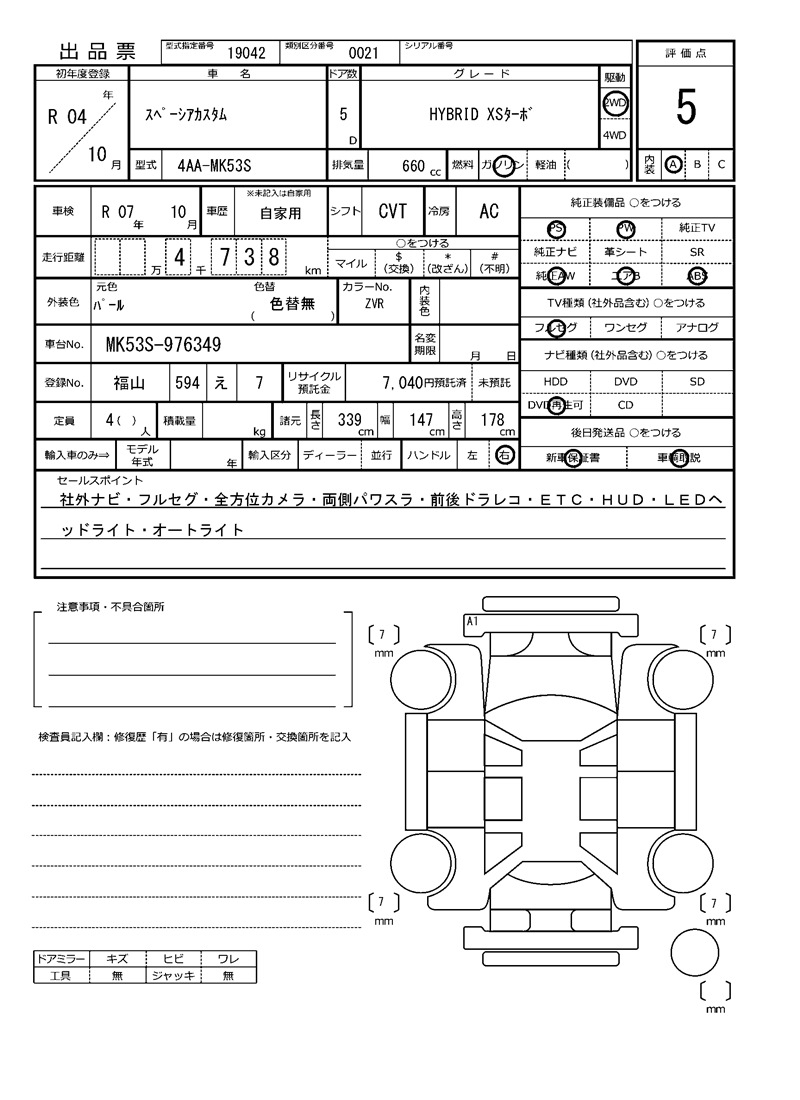 出品票 型式指定番号 19042 類別区分番号 0021 シリアル番号
評価点
5
内装 A B C
初年度登録 車名 ドア数 グレード 駆動
R 04 年 10 月 スペーシアカスタム 5 D HYBRID XSターボ 2WD 4WD
型式 4AA-MK53S 排気量 660 cc 燃料 ガソリン 軽油 ( )
車検 R 07 年 10 月 車歴 ※未記入は自家用 自家用 シフト CVT 冷房 AC
走行距離 万 4 千 7 3 8 km ○をつける
マイル $ (交換) * (改ざん) # (不明)
外装色 元色 パール 色替 色替無 ( ) カラーNo. ZVR 内装色
車台No. MK53S-976349 名変期限 月 日
登録No. 福山 594 え 7 リサイクル預託金 7,040円預託済 未預託
定員 4 ( ) 人 積載量 kg 諸元 長さ 339 cm 幅 147 cm 高さ 178 cm
輸入車のみ⇒ モデル年式 年 輸入区分 ディーラー 並行 ハンドル 左 右
純正装備品 ○をつける
PS PW 純正TV
純正ナビ 革シート SR
純正AW エアB ABS
TV種類(社外品含む) ○をつける
フルセグ ワンセグ アナログ
ナビ種類(社外品含む) ○をつける
HDD DVD SD
DVD再生可 CD
後日発送品 ○をつける
新車保証書 車輌取説
セールスポイント
社外ナビ・フルセグ・全方位カメラ・両側パワスラ・前後ドラレコ・ETC・HUD・LEDヘ
ッドライト・オートライト
注意事項・不具合箇所
検査員記入欄：修復歴「有」の場合は修復箇所・交換箇所を記入
ドアミラー キズ ヒビ ワレ
工具 無 ジャッキ 無
A1
7 mm
7 mm
7 mm
7 mm
mm